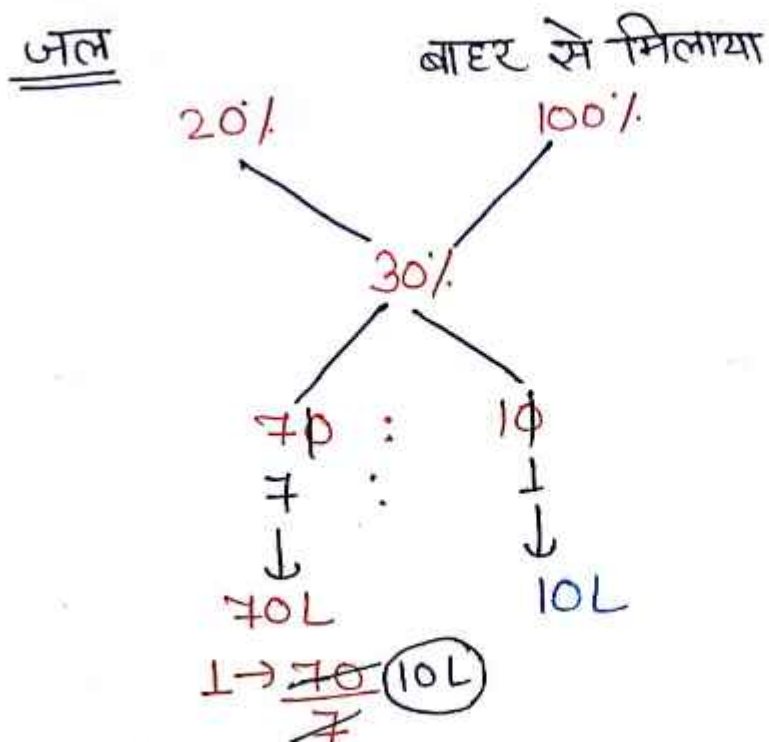 जल बाहर से मिलाया
20% 100%
30%
70 : 10
7 : 1
70L 10L
1→ 70/7 10L